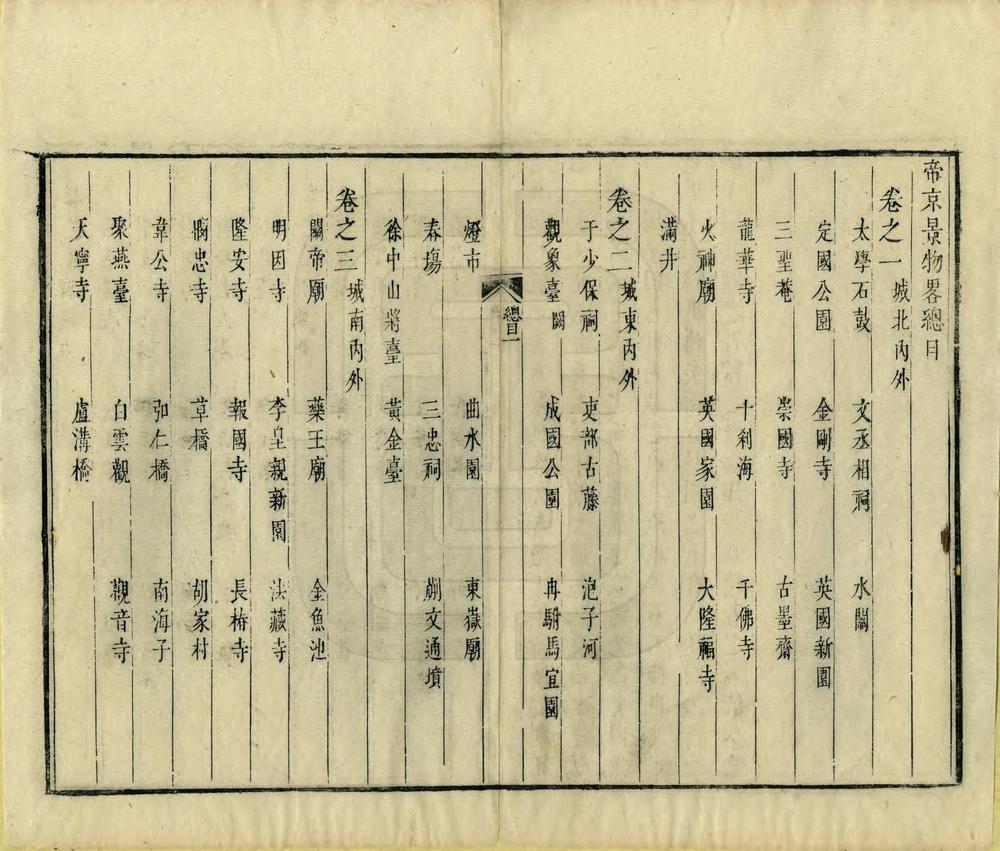 帝京景物畧總目
卷之一 城北內外
太學石鼓 文丞相祠 水關
定國公園 金剛寺 英國新園
三聖菴 崇國寺 古墨齋
龍華寺 十刹海 千佛寺
火神廟 英國家園 大隆福寺
滿井
卷之二 城東內外
于少保祠 吏部古藤 泡子河
觀象臺 闕 成國公園 冉駙馬宜園
總目一
燈市 曲水園 東嶽廟
春場 三忠祠 蒯文通墳
徐中山將臺 黃金臺
卷之三 城南內外
關帝廟 藥王廟 金魚池
明因寺 李皇親新園 法藏寺
隆安寺 報國寺 長椿寺
憫忠寺 草橋 胡家村
韋公寺 弘仁橋 南海子
聚燕臺 白雲觀 觀音寺
天寧寺 盧溝橋